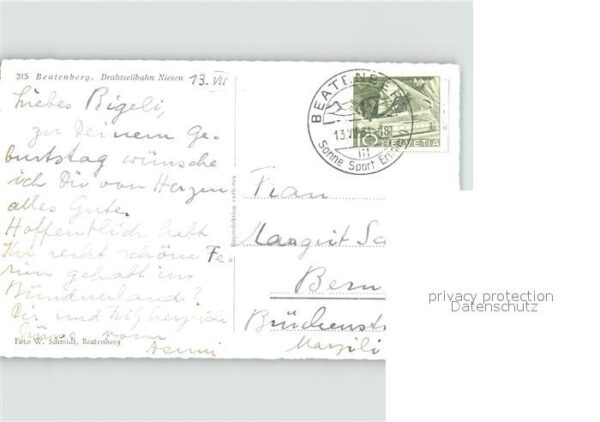 315 Beatenberg. Drahtseilbahn Niesen
13. VII
Liebes Bigeli,
zu Deinem Ge-
burtstag wünsche
ich Dir von Herzen
alles Gute.
Hoffentlich habt
Ihr recht schöne Fe-
rien gehabt im
Bündnerland?
Dir und herzliche
Grüsse vom
Aenni
Foto W. Schmidt, Beatenberg
Reproduktion verboten
BEATENBERG
13.VII
III
Sonne Sport
10 HELVETIA
Frau
Margrit Sc
Bern
Brückenst
Marzili
privacy protection
Datenschutz